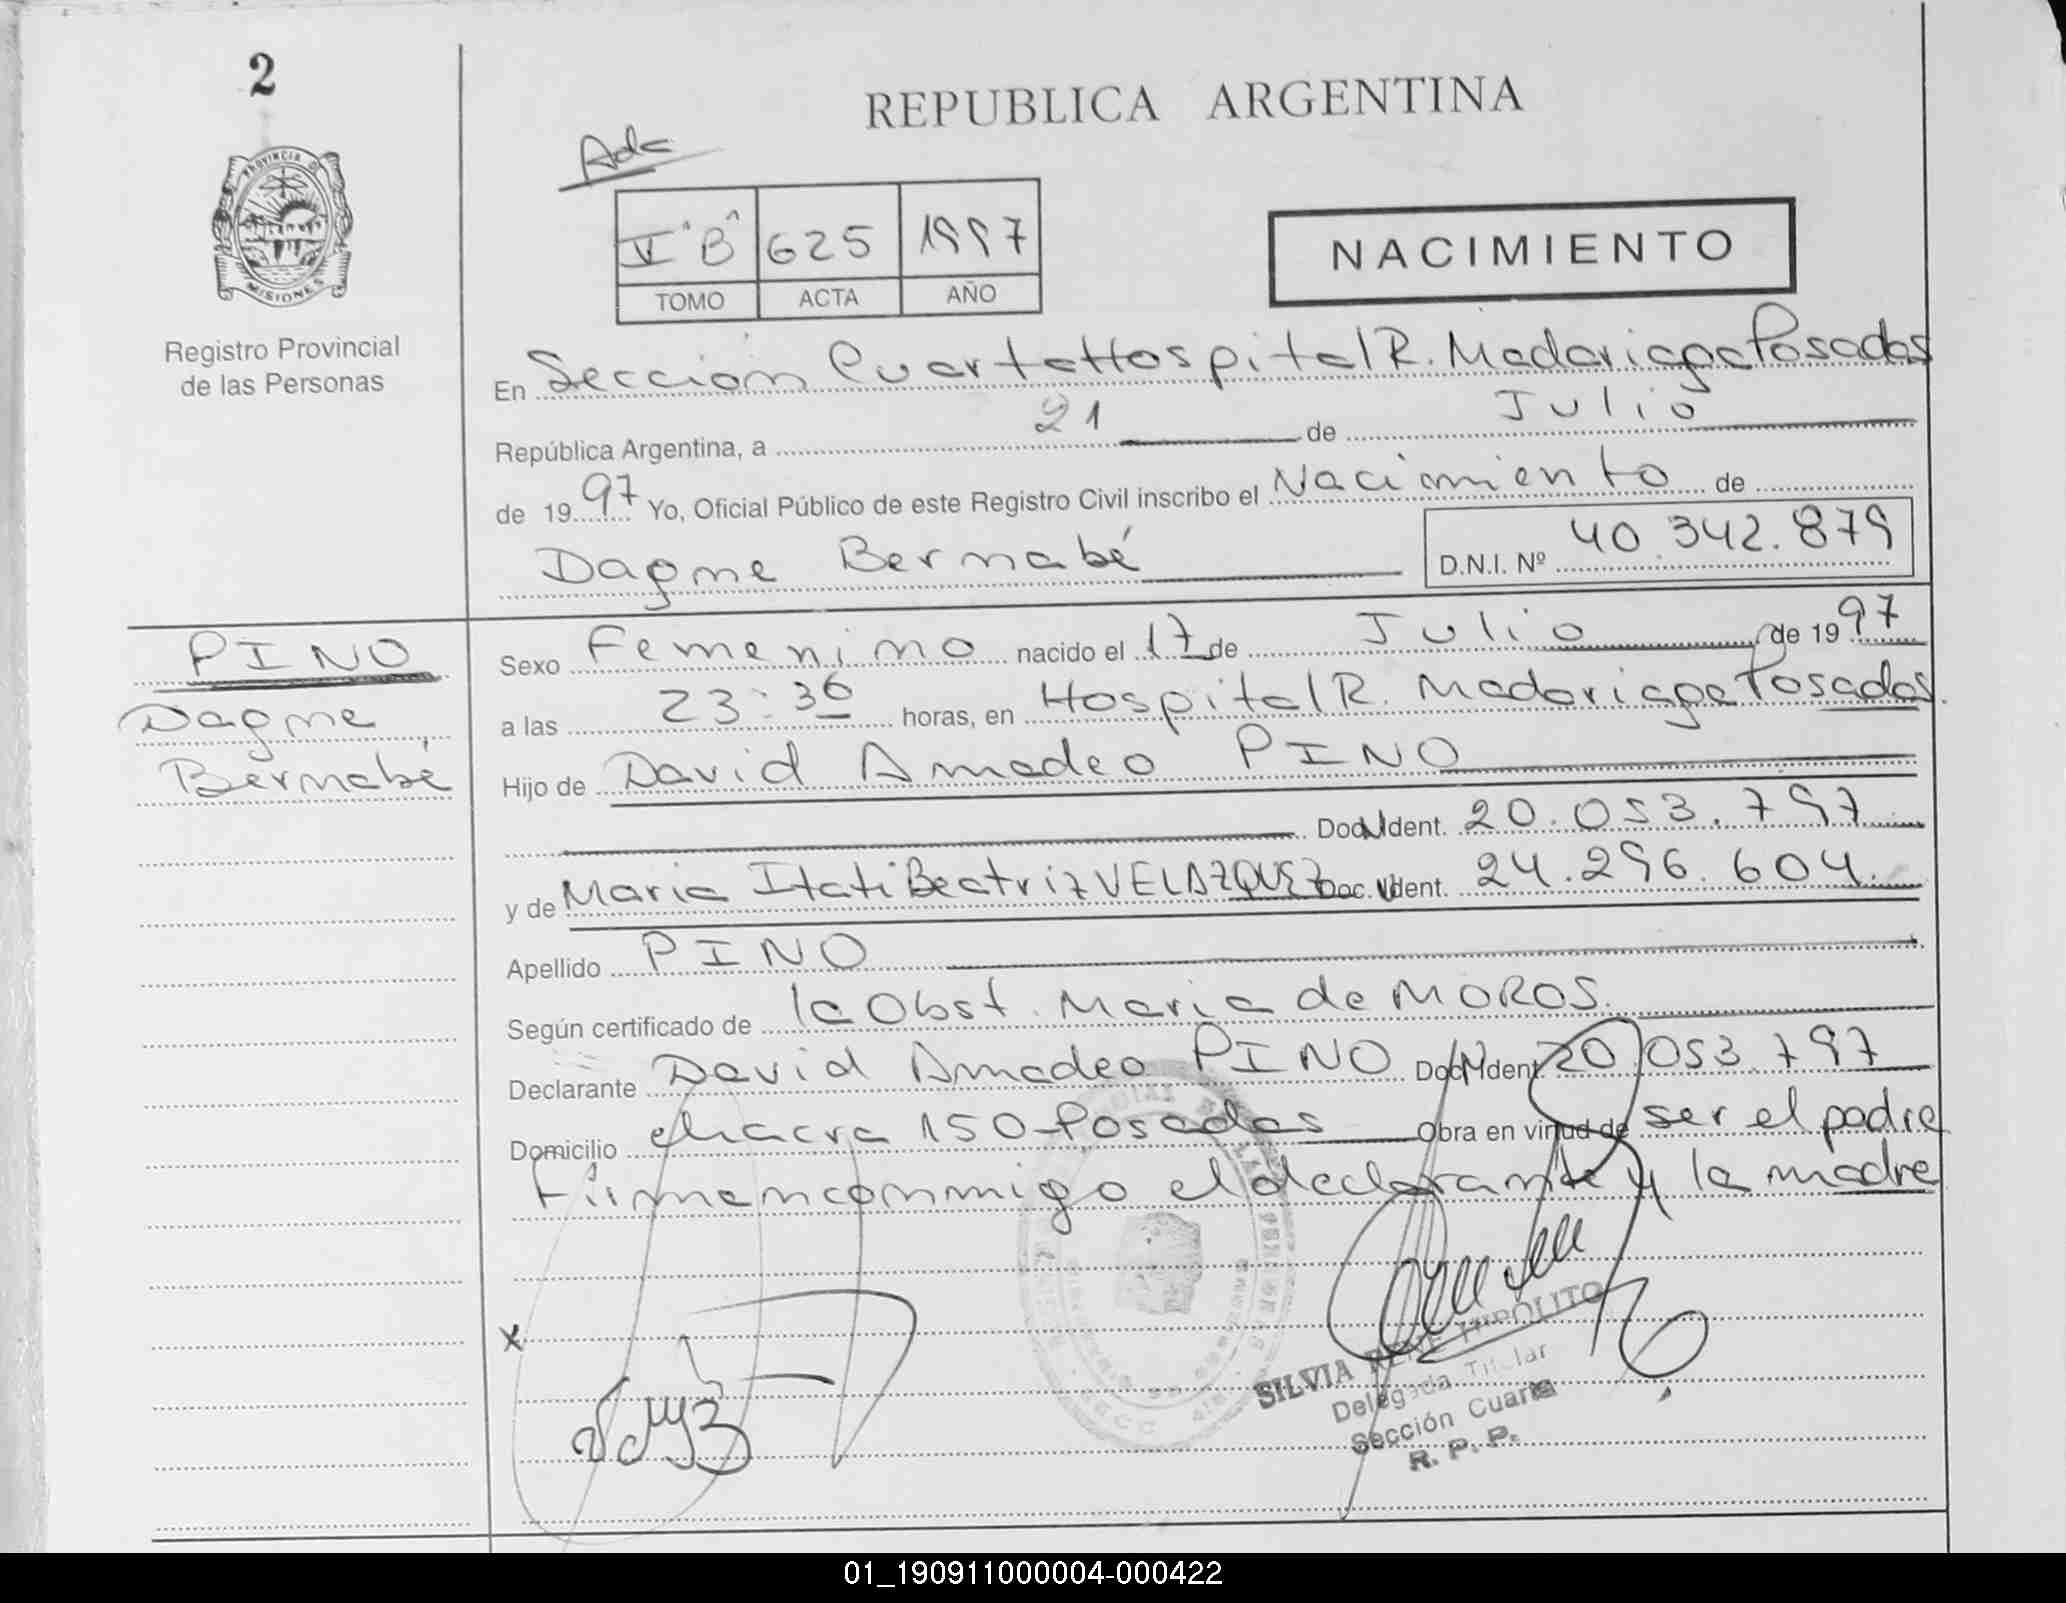 2
REPUBLICA ARGENTINA
PROVINCIA D
MISIONES
Registro Provincial
de las Personas
V "B" 625 1997
TOMO ACTA AÑO
NACIMIENTO
En Sección Cuarta Hospital R. Madariaga Posadas
República Argentina, a 21 de Julio
de 1997 Yo, Oficial Público de este Registro Civil inscribo el Nacimiento de
Dagme Bernabé D.N.I. Nº 40.342.879
PINO
Dagme,
Bernabé
Sexo Femenino nacido el 17 de Julio de 1997
a las 23:36 horas, en Hospital R. Madariaga Posadas.
Hijo de David Amadeo PINO
Doc. Ident. 20.053.797
y de Maria Itati Beatriz VELAZQUEZ Doc. Ident. 24.296.604.
Apellido PINO
Según certificado de la Obst. Maria de MOROS.
Declarante David Amadeo PINO Doc. Ident. 20.053.797
Domicilio chacra 150-Posadas Obra en virtud de ser el padre
Firman conmigo el declarante y la madre
x
SILVIA RENE HIPÓLITO
Delegada Titular
Sección Cuarta
R. P. P.
01_190911000004-000422